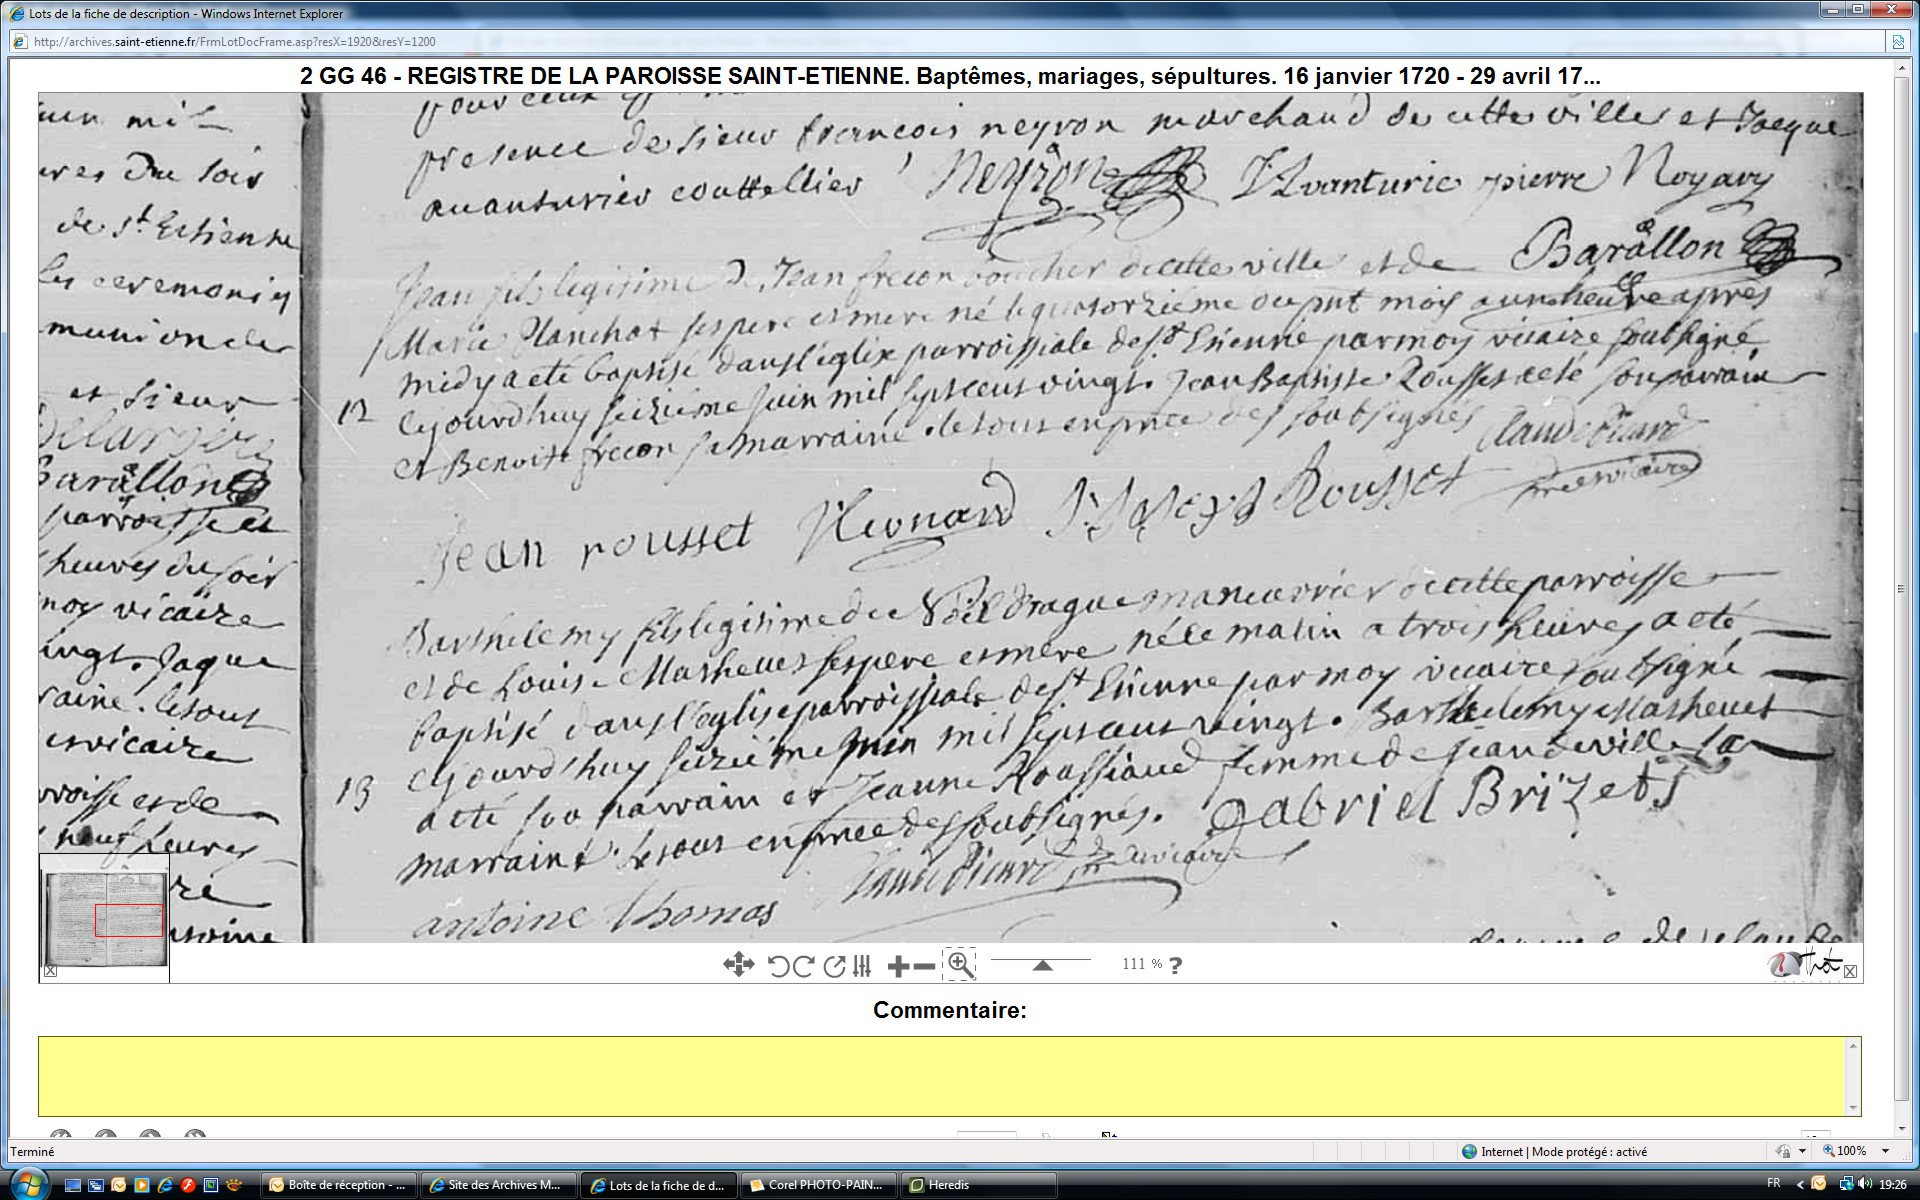 Lots de la fiche de description - Windows Internet Explorer
http://archives.saint-etienne.fr/FrmLotDocFrame.asp?resX=1920&resY=1200
2 GG 46 - REGISTRE DE LA PAROISSE SAINT-ETIENNE. Baptêmes, mariages, sépultures. 16 janvier 1720 - 29 avril 17...
de St Estienne
les ceremonies
et sieur
Barallon
parroisse et
heures du soir
moy vicaire
vingt. Jaque
raine. le tout
vicaire
roisse et de
neuf heures
pour ceux
presence de sieur francois neyron marchand de cette ville et Jacque
auanturier couttellier Neyron J Lvanturie pierre Noyary
Barallon
Jean fils legitime de Jean frecon boucher de cette ville et de
Marie Planchat ses pere et mere né le quatorzieme du pnt mois a un heure apres
midy a eté baptisé dans l'eglise parroissiale de St Etienne par moy vicaire soubsigné
12
cejourd'huy seizieme juin mil sept cent vingt. Jean Baptiste Rousset a eté son parrain
et Benoite frecon sa marraine. le tout en pnce des soubsignés Claude Picard
pre vicaire
Jean rousset Rousset
Barthelemy fils legitime de Noël drague maneuvrier de cette parroisse
et de Louise Matheuet ses pere et mere né le matin a trois heures a eté
baptisé dans l'eglise parroissiale de St Etienne par moy vicaire soubsigné
cejourd'huy seizieme juin mil sept cent vingt. Barthelemy Matheuet
13
a eté son parrain et Jeanne Roussiaud femme de Jean deville sa
marraine. le tout en pnce des soubsignés. Gabriel Brizets
Claude Picard pre vicaire
antoine Thomas
111 % ?
Commentaire:
Terminé
Internet | Mode protégé : activé
100%
Boîte de réception - ...
Site des Archives M...
Lots de la fiche de d...
Corel PHOTO-PAIN...
Heredis
FR
19:26